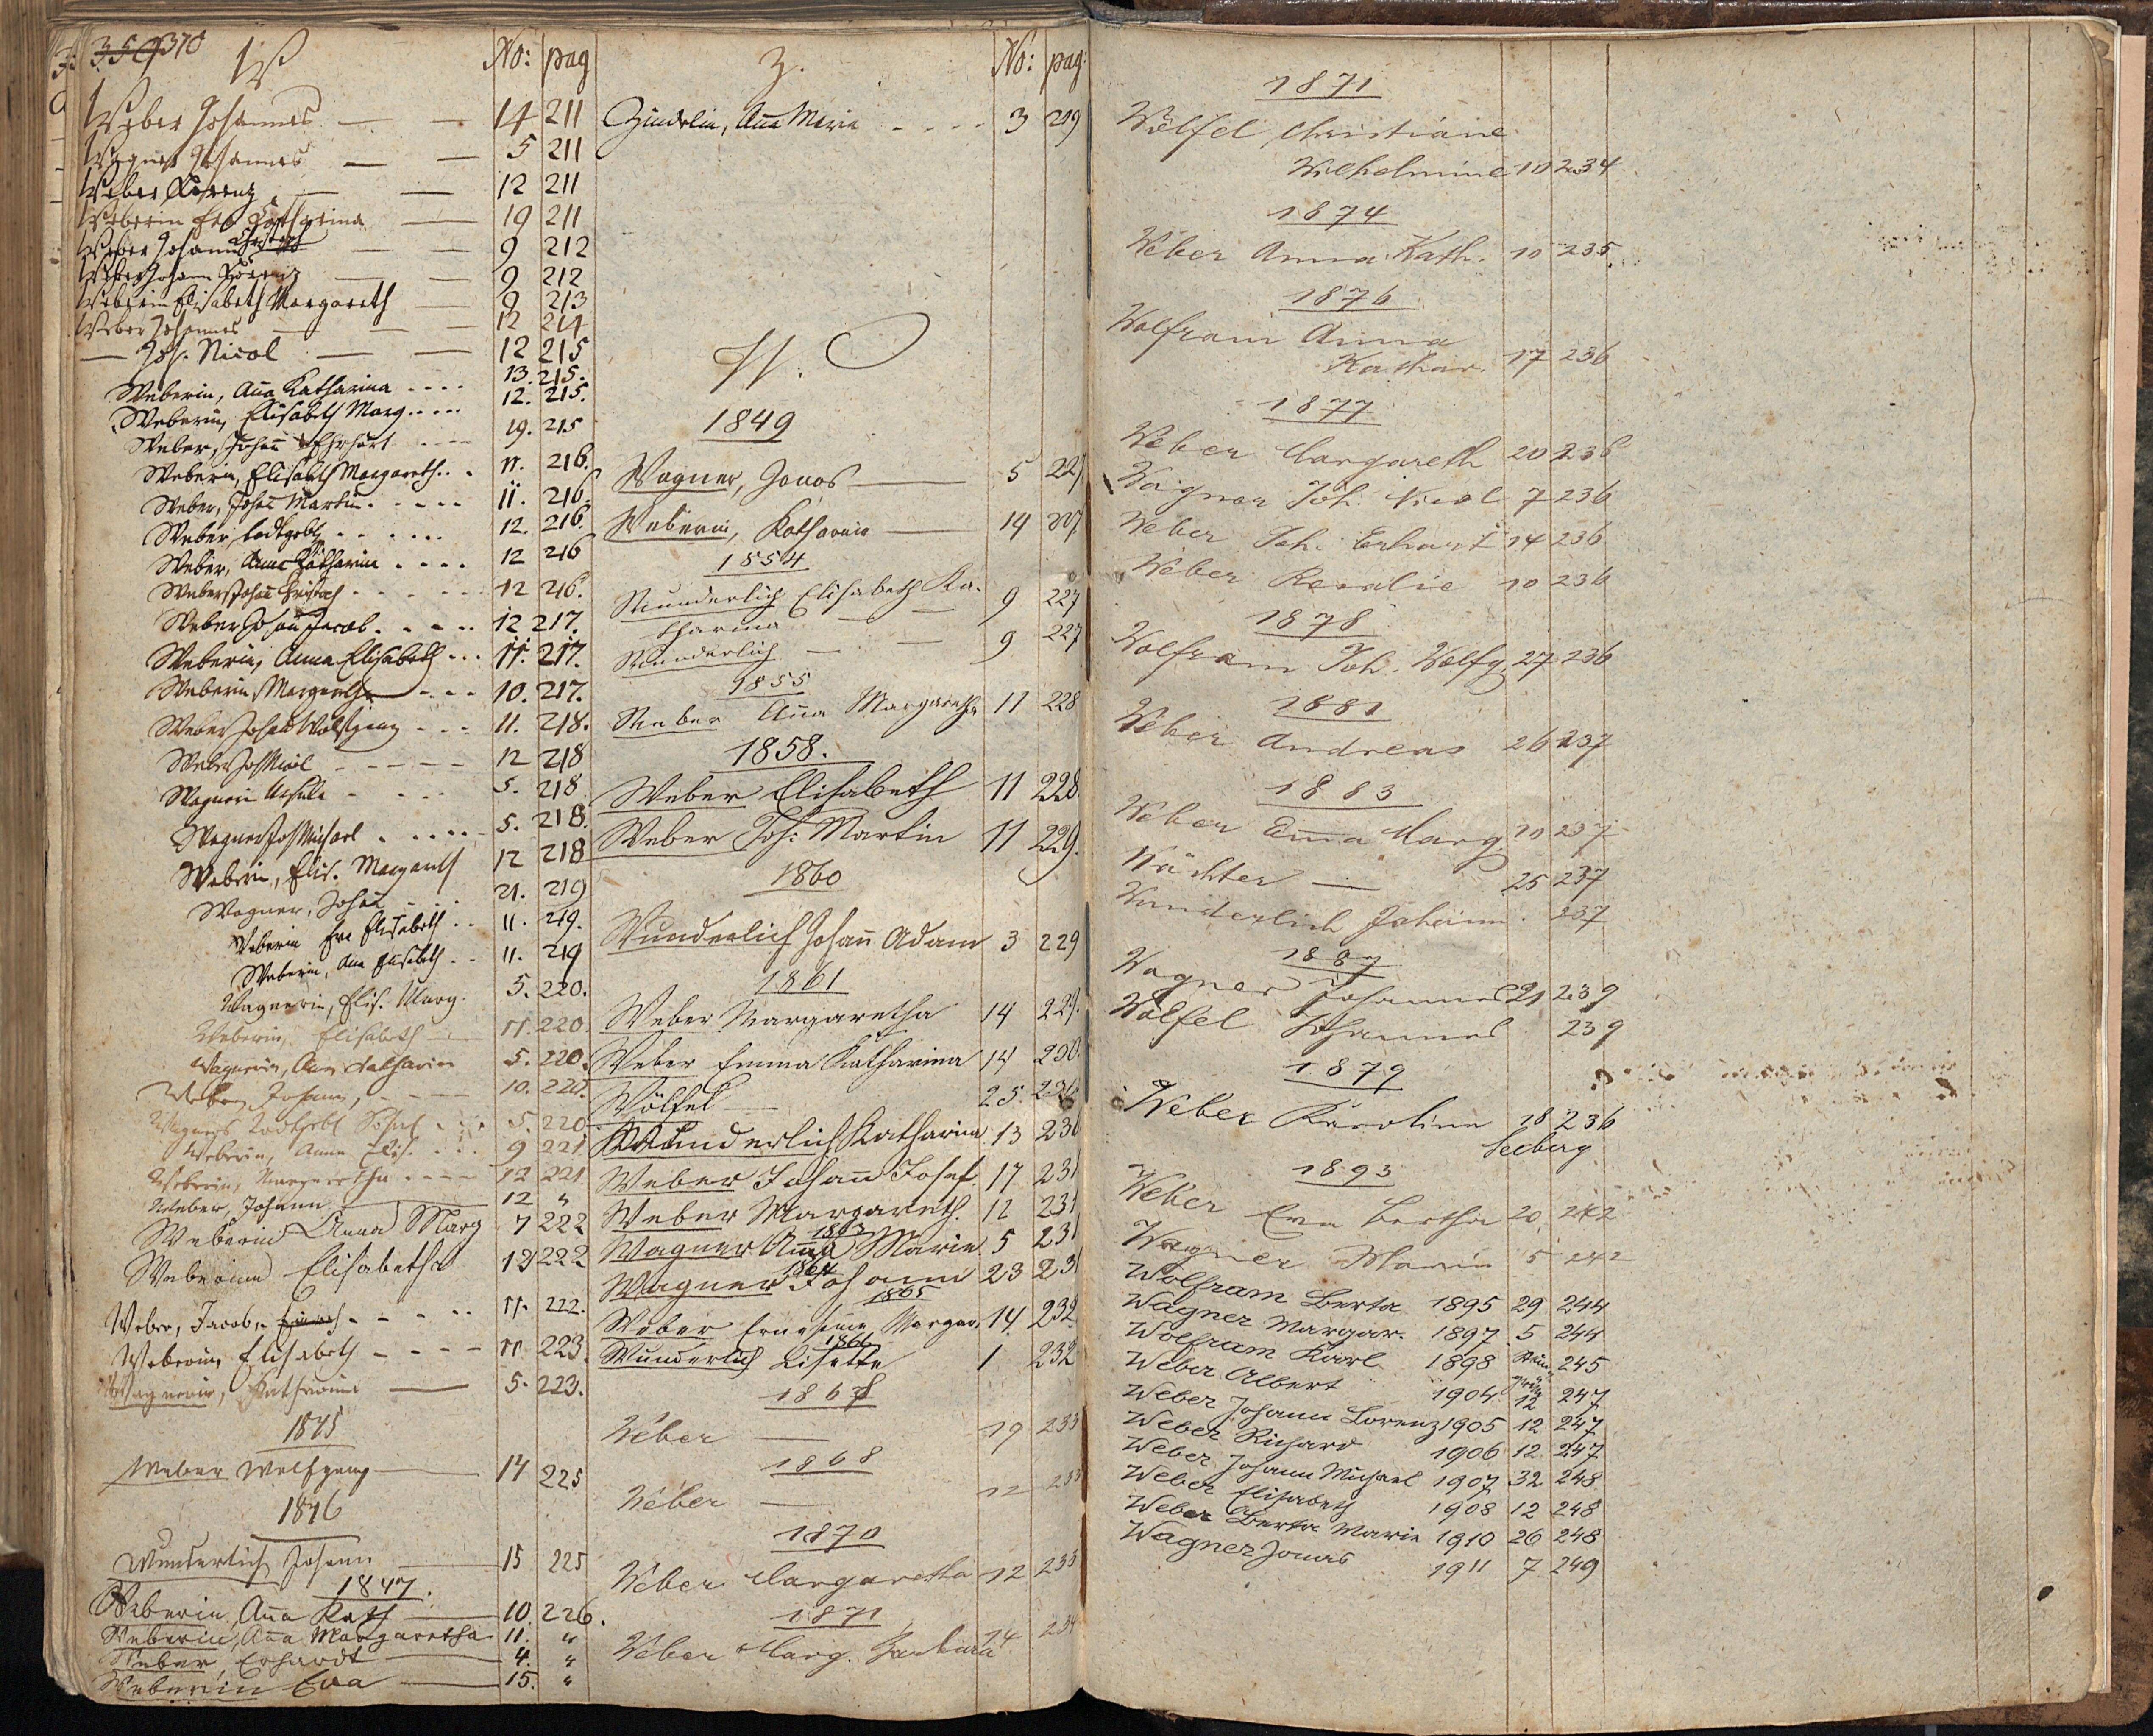 370
W No: pag
Weber Johannes — — 14 211
Wagner Johannes — — 5 211
Weber Lorenz — — 12 211
Weberin Eva Catharina — 19 211
Weber Johann — — 9 212
Weber Johann Lorenz — — 9 212
Weberin Elisabeth Margareth — 9 213
Weber Johannes — — 12 214
— Joh. Nicol — — 12 215
Weberin, Anna Katharina .... 13. 215.
Weberin, Elisabeth Marg..... 12. 215.
Weber, Johann Ehrhart .... 19. 215
Weberin, Elisabeth Margareth... 11. 216.
Weber, Johann Martin..... 11. 216.
Weber, todtgeb. ...... 12. 216.
Weber, Anna Katharina .... 12 216
Weber Johann ..... 12 216.
Weber Johann Jacob. .... 12 217.
Weberin, Anna Elisabeth ... 11. 217.
Weberin Margareth .... 10. 217.
Weber Johann Wolfgang ... 11. 218.
Weber Joh Nicol ----- 12 218
Wagnerin ..... 5. 218.
Wagner Joh Michael ..... 5. 218.
Weberin, Elis. Margareth 12 218
Wagner, Johann ... 21. 219
Weberin Eva Elisabeth .. 11. 219.
Weberin, Anna Elisabeth .. 11. 219
Wagnerin, Elis. Marg. 5. 220.
Weberin, Elisabeth — 11. 220.
Wagnerin, Anna Catharina 5. 220.
Weber Johann, ---- 10. 220.
Wagners todtgeb. Sohn .... 5. 220
Weberin, Anna Elis. .... 9 221
Weberin, Margaretha ---- 12 221
Weber, Johann — 12 "
Weberin Anna Marg 7 222
Weberinn Elisabetha 12 222
Weber, Jacob, ..... 11. 222.
Weberin, Elisabeth ---- 11. 223.
Wagnerin, Katharina — 5. 223.
1845
Weber Wolfgang — 14 225
1846
Wunderlich Johann — 15 225
1847.
Weberin, Anna Kath — 10. 226.
Weberin, Anna Margaretha 11. "
Weber Erhardt — 4. "
Weberin Eva — 15. "
Z. No: pag:
Zindelin, Anna Maria .... 3 209
W.
1849
Wagner, Jonas — 5 227.
Weberin, Katharina — 14 227.
1854
Wunderlich Elisabeth Ka- 9 227
tharina —
Wunderlich — — 9 227
1855
Weber Anna Margaretha 11 228
1858.
Weber Elisabeth 11 228.
Weber Joh: Martin 11 229.
1860
Wunderlich Johann Adam 3 229
1861
Weber Margaretha 14 229.
Weber Emma Katharina 14 230.
Wölfel — 25. 230.
Wunderlich Katharina 13 230
Weber Johann Josef 17 231
Weber Margareth. 12 231
1863
Wagner Anna Maria 5 231
1864
Wagner Johann 23 231
1865
Weber Ernestine Margar. 14. 232
1866
Wunderlich Lisette 1 232
1867
Weber — 19 233
1868
Weber — 12 233
1870
Weber Margaretha 12 233
1871
Weber Marg. Barbara 14 234
1871
Wölfel Christiane
Wilhelmine 10 234
1874
Weber Anna Kath. 10 235.
1876
Wolfram Anna
Kathar. 17 236
1877
Weber Margareth 20 236
Wagner Joh. Nicol 7 236
Weber Joh. Erhart 14 236
Weber Rosalie 10 236
1878
Wolfram Joh. Wolfg. 27 236
1881
Weber Andreas 26 237
1883
Weber Emma Marg. 10 237
Wächter — 25 237
Wunderlich Johann. 237
1887
Wagner Johannes 21 239
Wölfel Johannes 239
1879
Weber Karoline 18 236
Seeberg
1893
Weber Eva Bertha 20 242
Wagner Maria 5 242
Wolfram Berta 1895 29 244
Wagner Margar. 1897 5 244
Wolfram Karl 1898 245
Weber Albert 1904 12 247
Weber Johann Lorenz 1905 12 247
Weber Richard 1906 12 247
Weber Johann Michael 1907 32 248
Weber Elisabeth 1908 12 248
Weber Berta Marie 1910 26 248
Wagner Jonas 1911 7 249